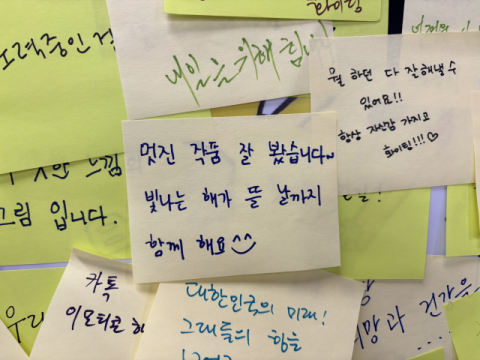 화이팅
노력중인
내일을 위해 힘내
뭘 하던 다 잘해낼 수
있어요!!
항상 자신감 가지고
화이팅!!!♡
멋진 작품 잘 봤습니다~
빛나는 해가 뜰 날까지
함께 해요^^
느낌
그림 입니다.
카톡
이모티콘
우리
대한민국의 미래!
그대들의 힘을
희망과 건강을